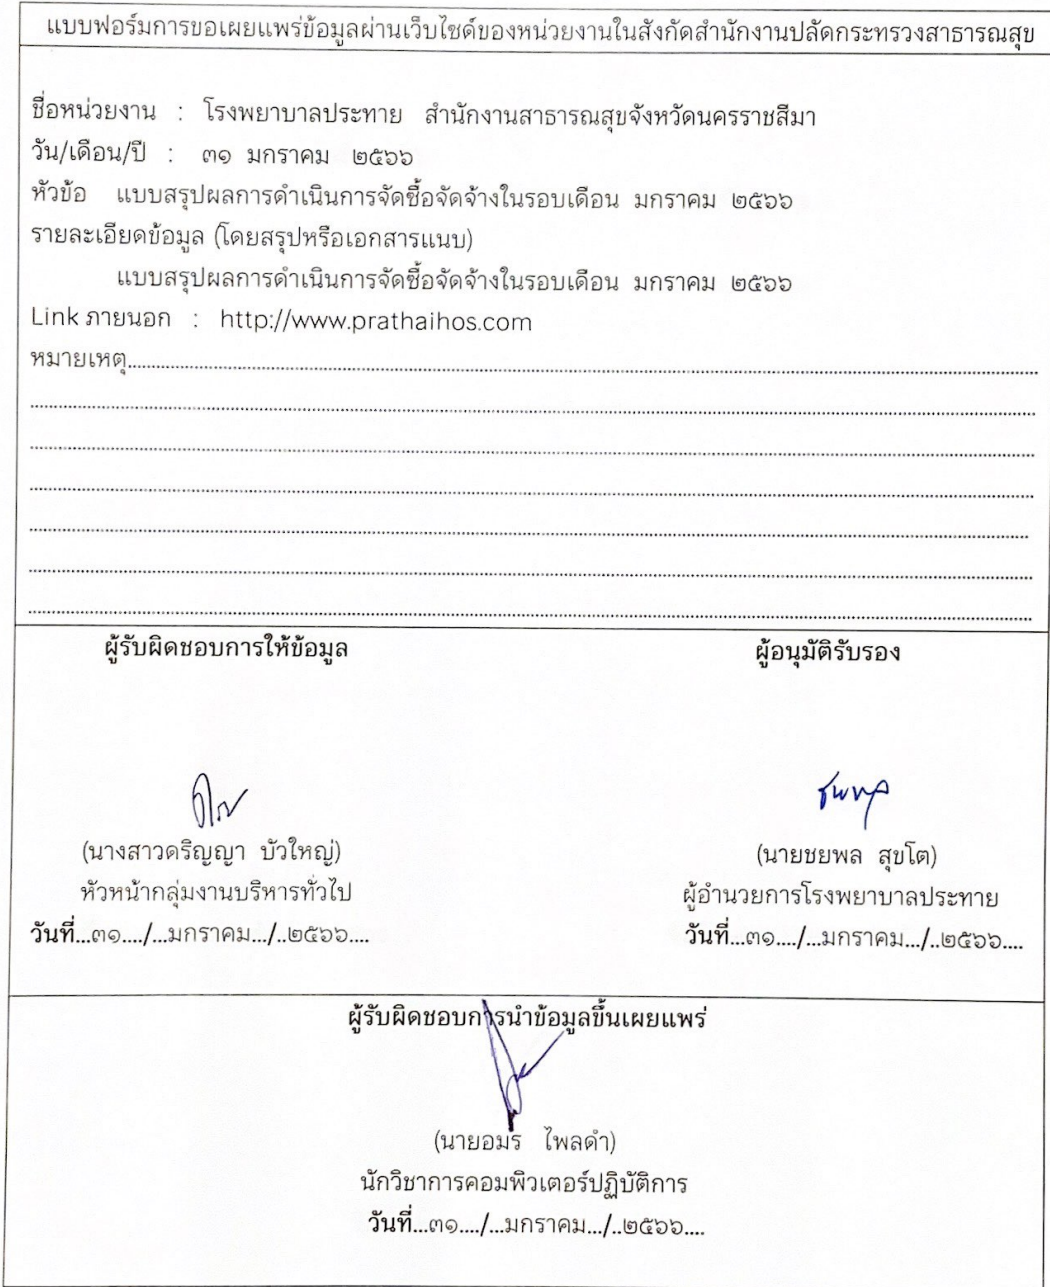 แบบฟอร์มการขอเผยแพร่ข้อมูลผ่านเว็บไซต์ของหน่วยงานในสังกัดสำนักงานปลัดกระทรวงสาธารณสุข
ชื่อหน่วยงาน : โรงพยาบาลประทาย สำนักงานสาธารณสุขจังหวัดนครราชสีมา
วัน/เดือน/ปี : ๓๑ มกราคม ๒๕๖๖
หัวข้อ แบบสรุปผลการดำเนินการจัดซื้อจัดจ้างในรอบเดือน มกราคม ๒๕๖๖
รายละเอียดข้อมูล (โดยสรุปหรือเอกสารแนบ)
แบบสรุปผลการดำเนินการจัดซื้อจัดจ้างในรอบเดือน มกราคม ๒๕๖๖
Link ภายนอก : http://www.prathaihos.com
หมายเหตุ
ผู้รับผิดชอบการให้ข้อมูล
(นางสาวดริญญา บัวใหญ่)
หัวหน้ากลุ่มงานบริหารทั่วไป
วันที่...๓๑..../...มกราคม.../..๒๕๖๖....
ผู้อนุมัติรับรอง
(นายชยพล สุขโต)
ผู้อำนวยการโรงพยาบาลประทาย
วันที่...๓๑..../...มกราคม.../..๒๕๖๖....
ผู้รับผิดชอบการนำข้อมูลขึ้นเผยแพร่
(นายอมร ไพลดำ)
นักวิชาการคอมพิวเตอร์ปฏิบัติการ
วันที่...๓๑..../...มกราคม.../..๒๕๖๖....